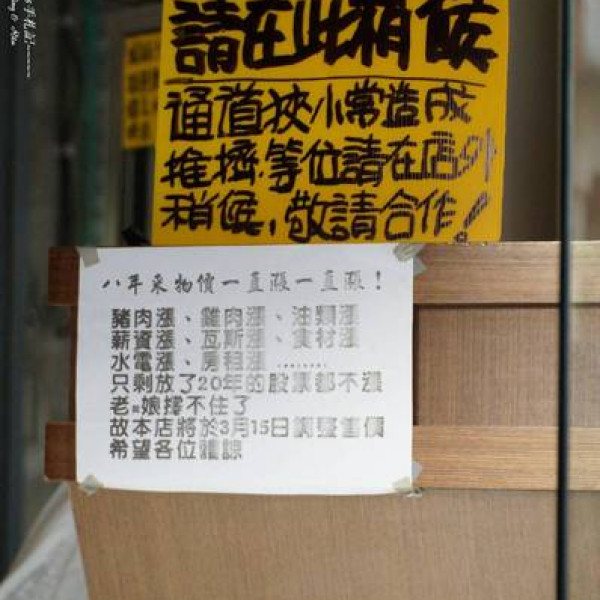 請在此稍候
通道狹小常造成
推擠.等位請在店外
稍候,敬請合作!
八年來物價一直漲一直漲!
豬肉漲、雞肉漲、油類漲
薪資漲、瓦斯漲、食材漲
水電漲、房租漲
只剩放了20年的股票都不漲
老闆娘撐不住了
故本店將於3月15日調整售價
希望各位體諒